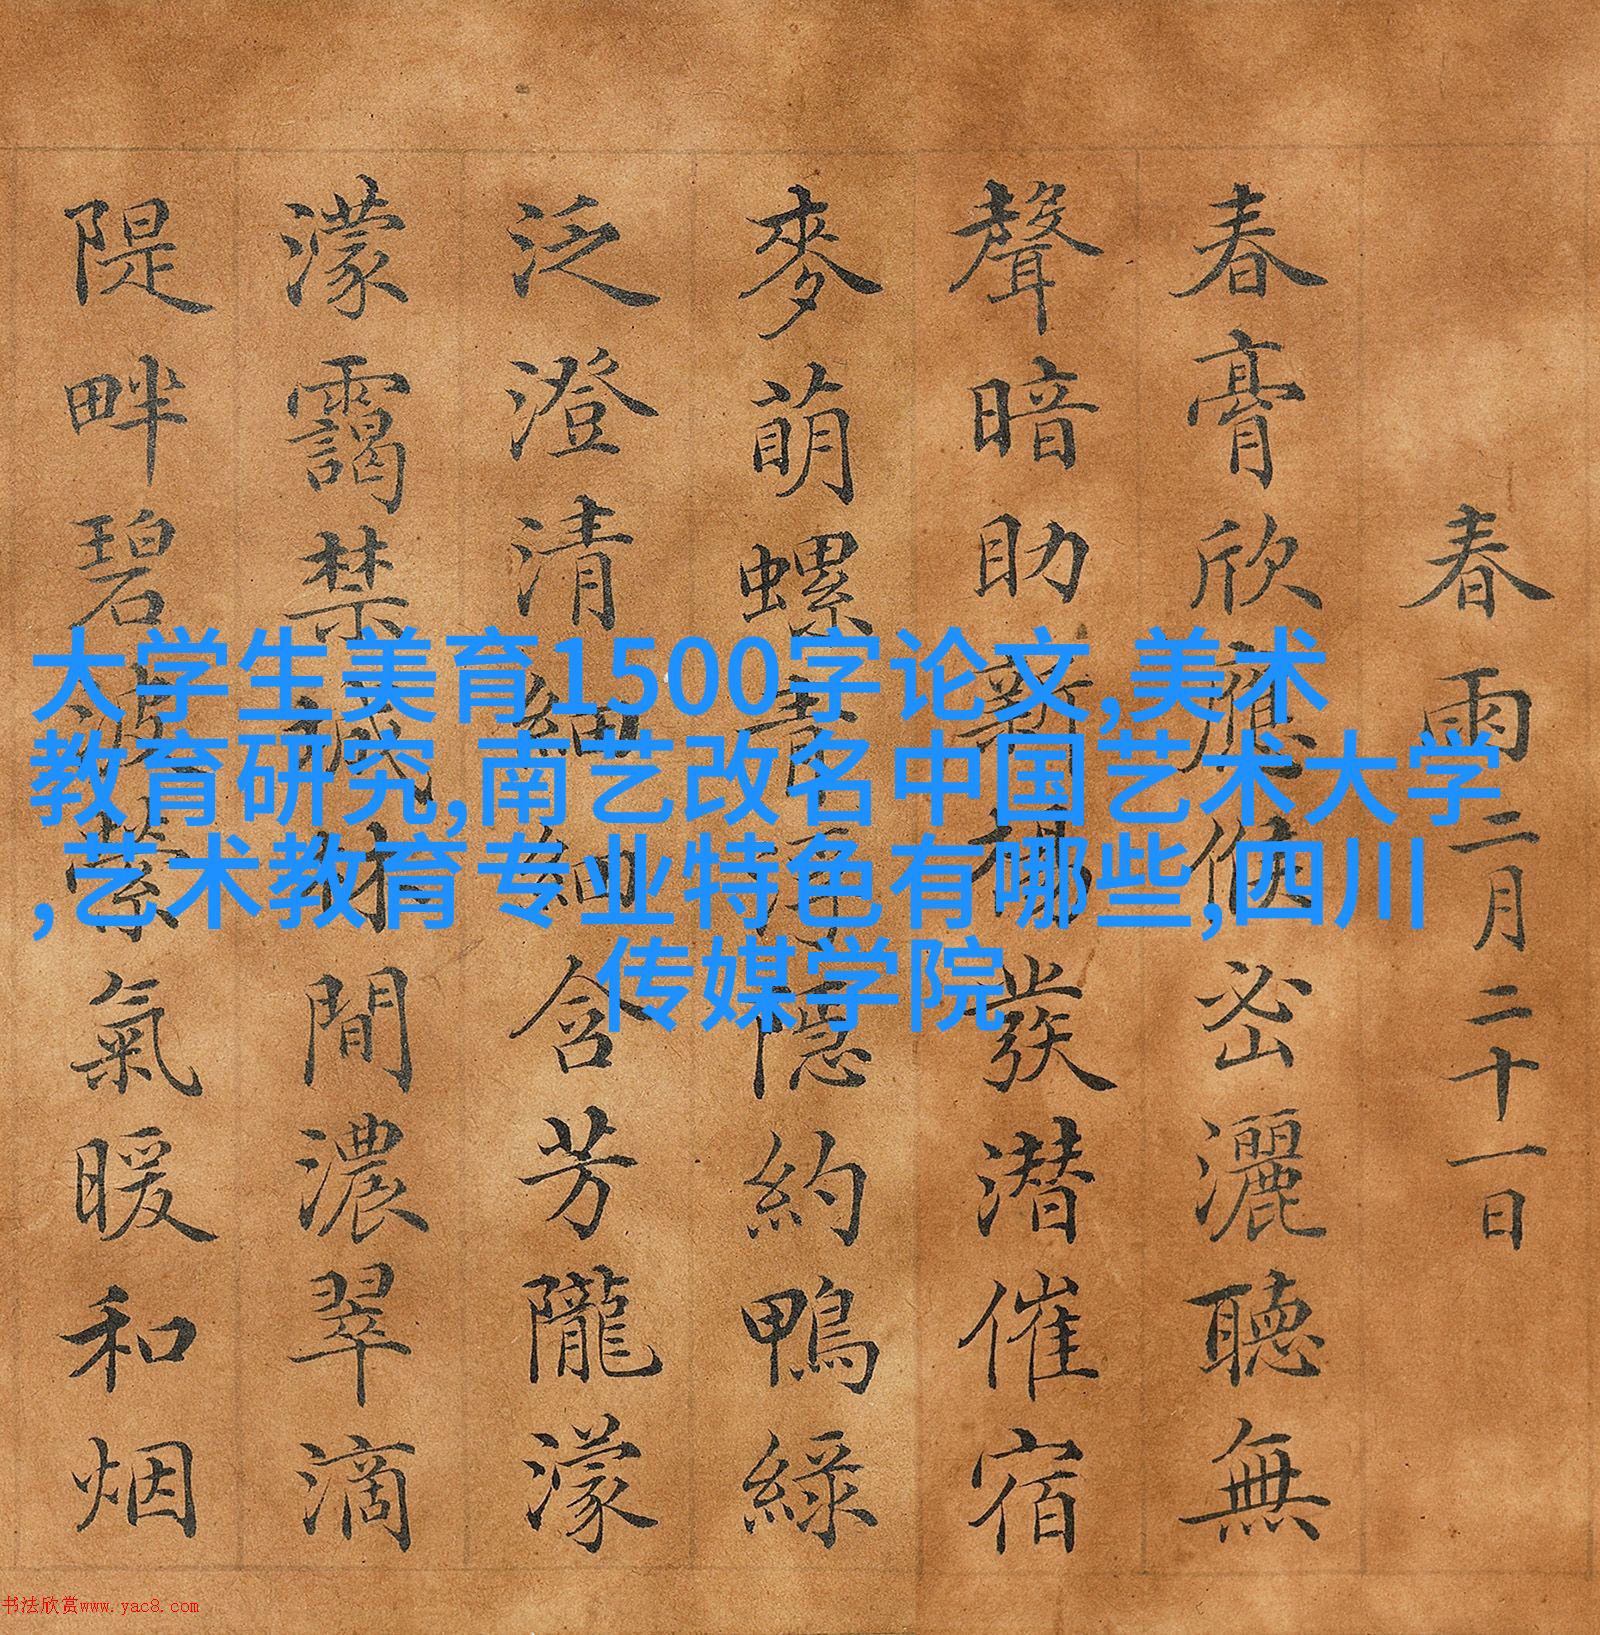 春雨二月二十一日
春膏欣應候密灑聽無
聲暗助新楊發潛催宿
麥萌螺青浮隱約鴨綠
泛澄清細細含芳隴濛
濛靄禁城林間濃翠滴
隄畔碧波縈氣暖和烟
大学生美育1500字论文,美术
教育研究,南艺改名中国艺术大学
,艺术教育专业特色有哪些,四川
传媒学院
书法欣赏www.yac8.com